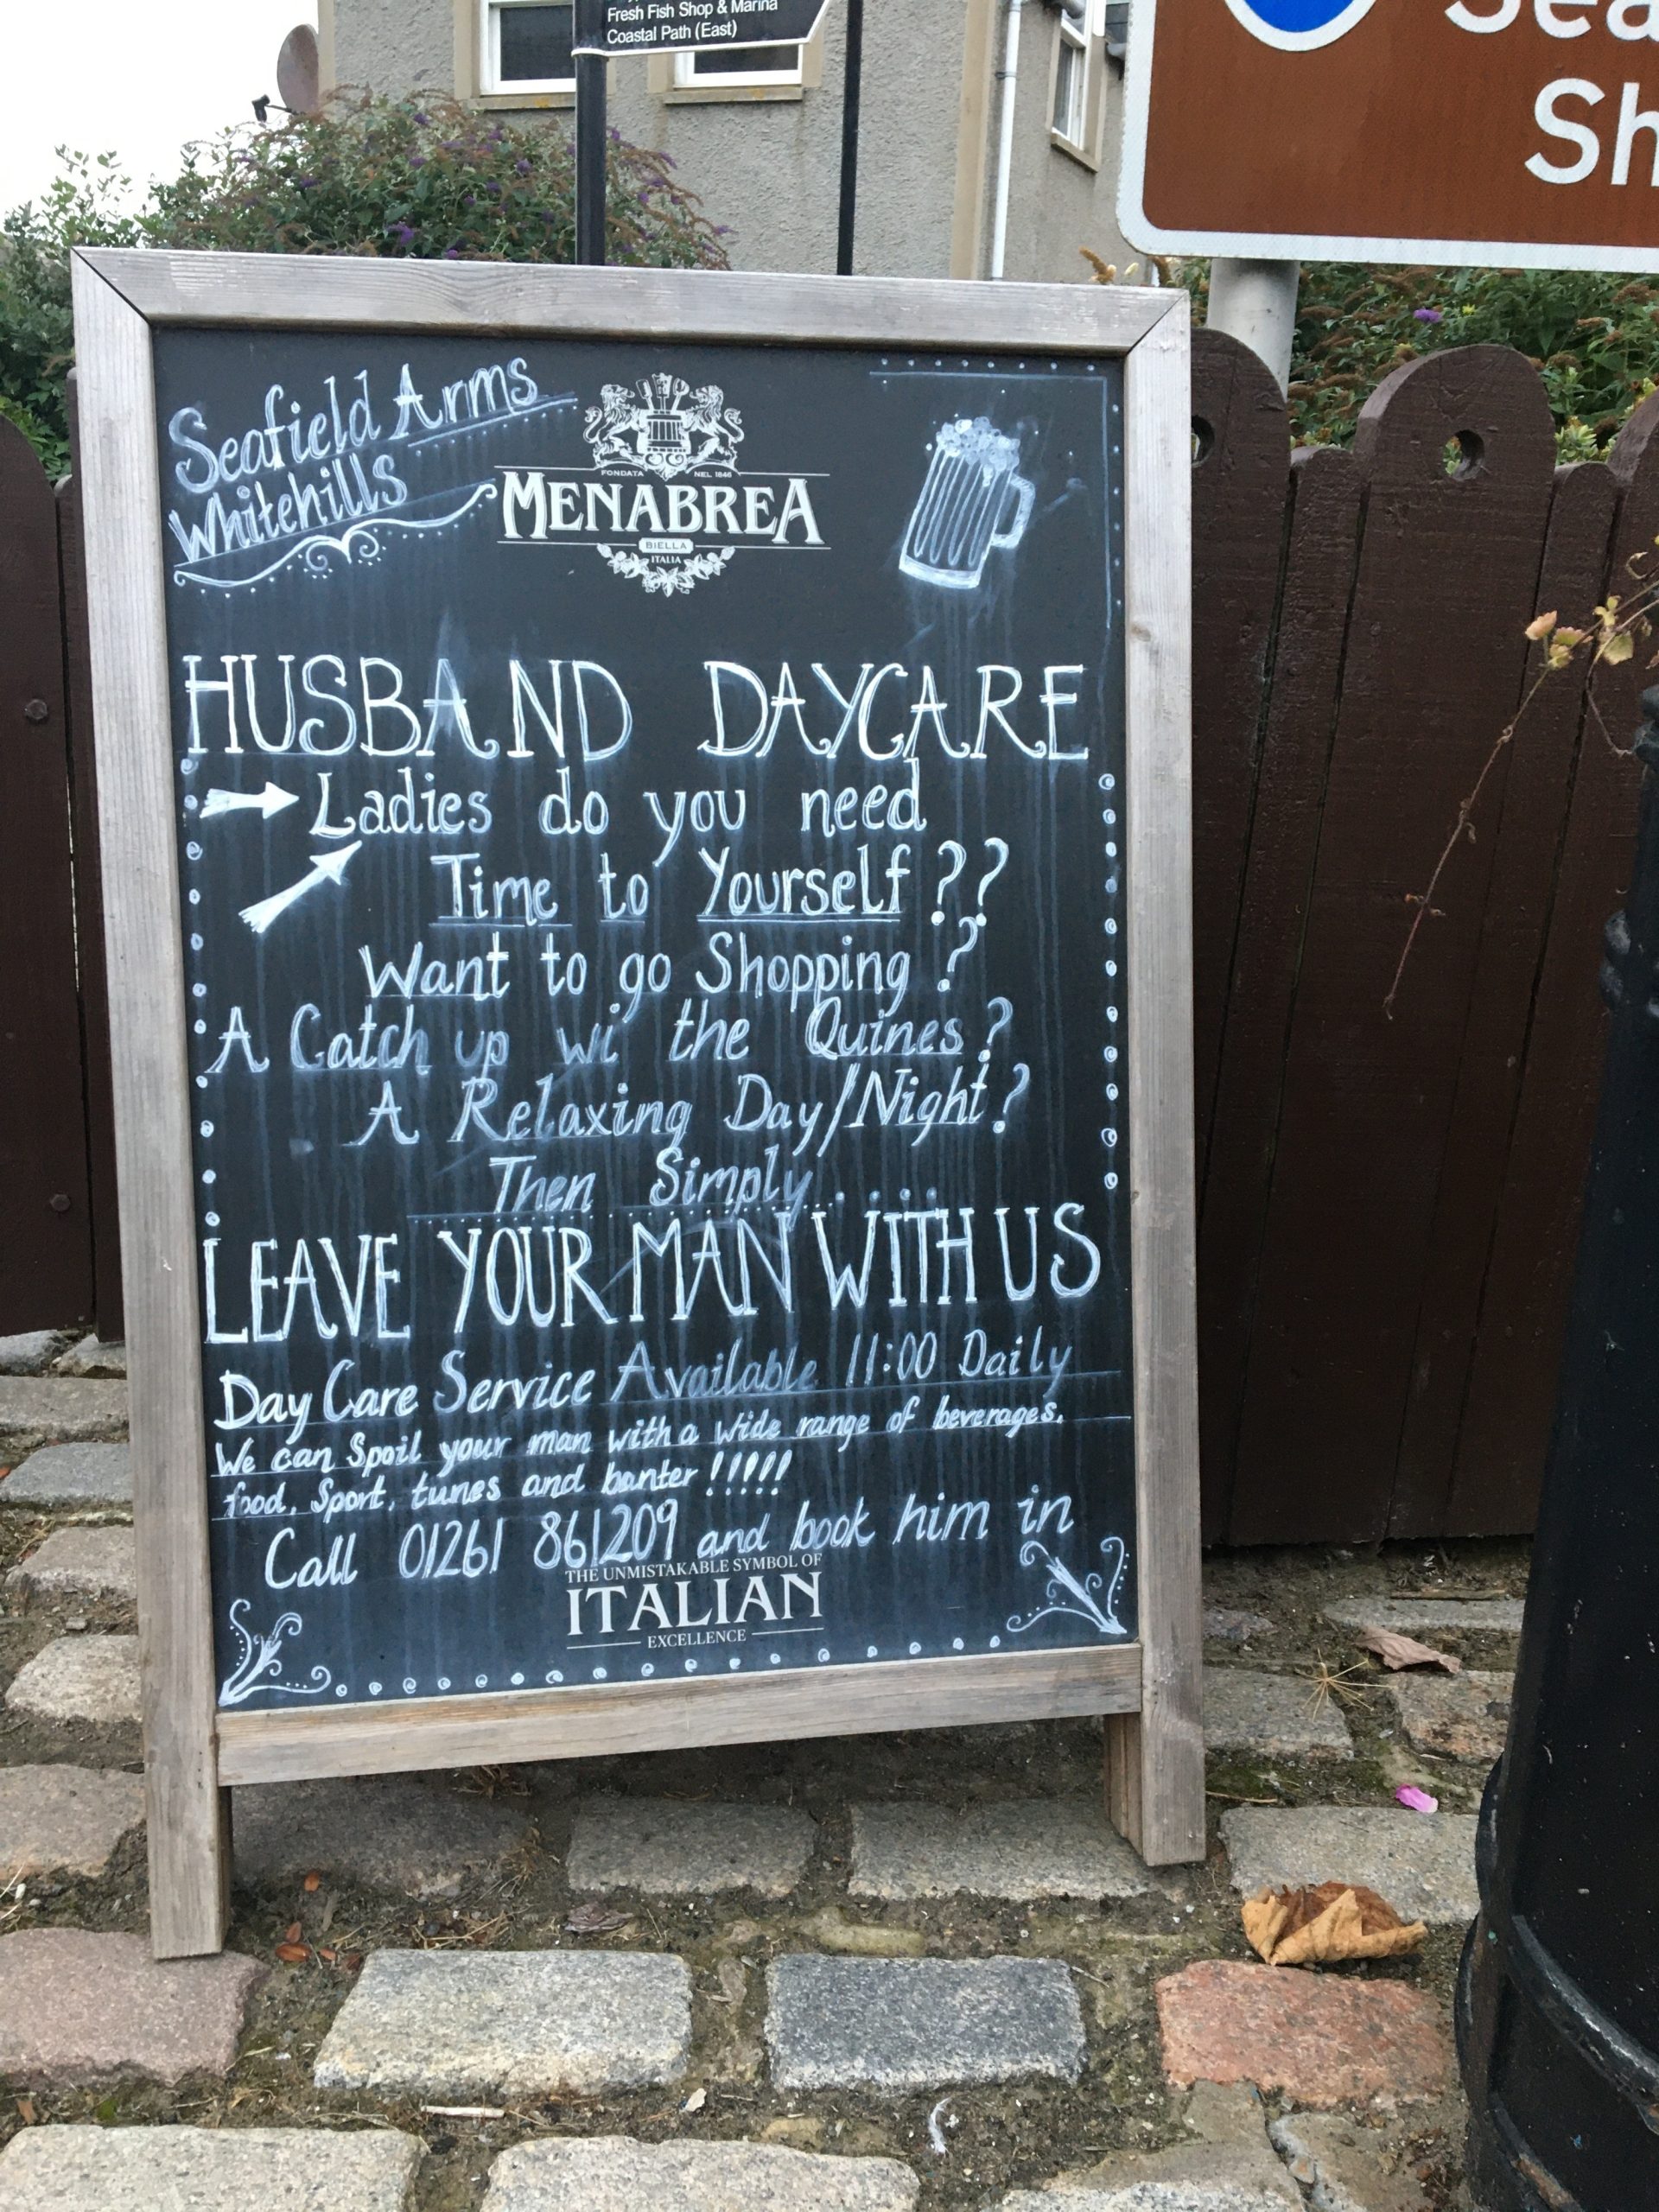 Fresh Fish Shop & Marina
Coastal Path (East)
Sea
Sh
Seafield Arms
Whitehills
FONDATA NEL 1846
MENABREA
BIELLA
ITALIA
HUSBAND DAYCARE
Ladies do you need
Time to Yourself??
Want to go Shopping?
A Catch up wi' the Quines?
A Relaxing Day/Night?
Then Simply......
LEAVE YOUR MAN WITH US
Day Care Service Available 11:00 Daily
We can Spoil your man with a wide range of beverages,
food, Sport, tunes and banter!!!!!
Call 01261 861209 and book him in
THE UNMISTAKABLE SYMBOL OF
ITALIAN
EXCELLENCE